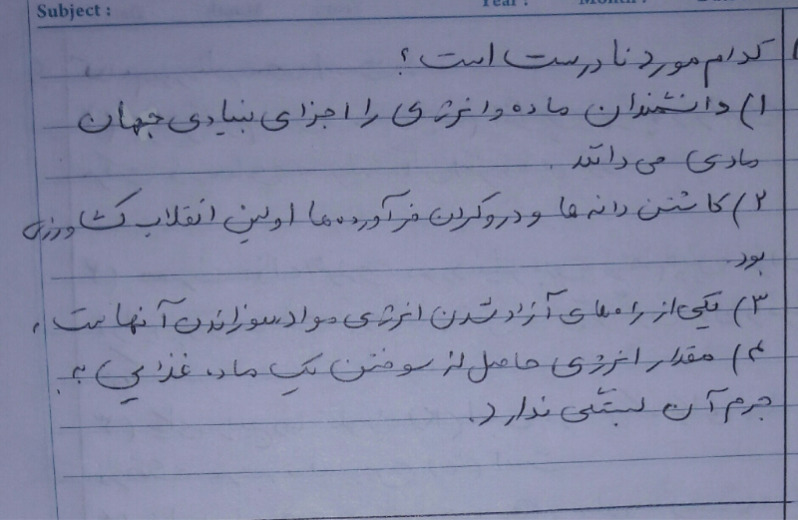 Subject :
Year :
Month :
کدام مورد نادرست است؟
۱) دانشمندان ماده و انرژی را اجزای بنیادی جهان
مادی می دانند.
۲) کاشتن دانه ها و درو کردن فرآورده ها اولین انقلاب کشاورزی
بود.
۳) یکی از راه های آزاد شدن انرژی مواد سوزاندن آنهاست.
۴) مقدار انرژی حاصل از سوختن یک ماده غذایی به
جرم آن بستگی ندارد.